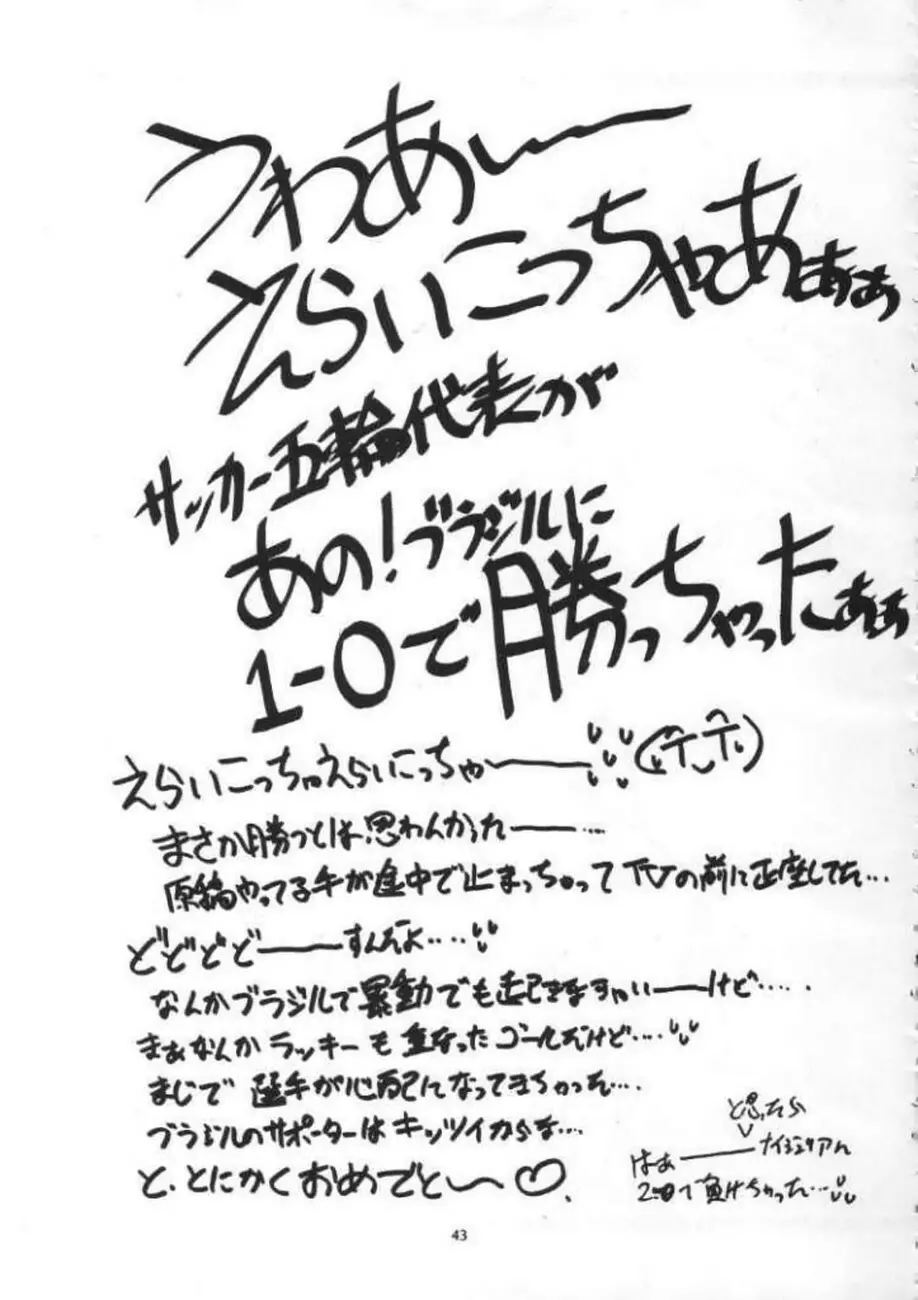 うわあー
えらいこっちゃあぁぁ
サッカー五輪代表が
あの!ブラジルに
1-0で勝っちゃったぁぁ
えらいこっちゃえらいこっちゃー
まさか勝つとは思わんかったー…
原稿やってる手が途中で止まっちゃってTVの前に正座してた…
どどどどーすんだよ‥‥
なんかブラジルで暴動でも起きなきゃいーけど‥‥‥
まぁなんかラッキーも重なったゴールだけど‥‥
まじで選手が心配になってきちゃった…
ブラジルのサポーターはキッツイからな…
と、とにかくおめでとー♡
と思ったら
はぁー ナイジェリアに
2-0で負けちゃった…
43